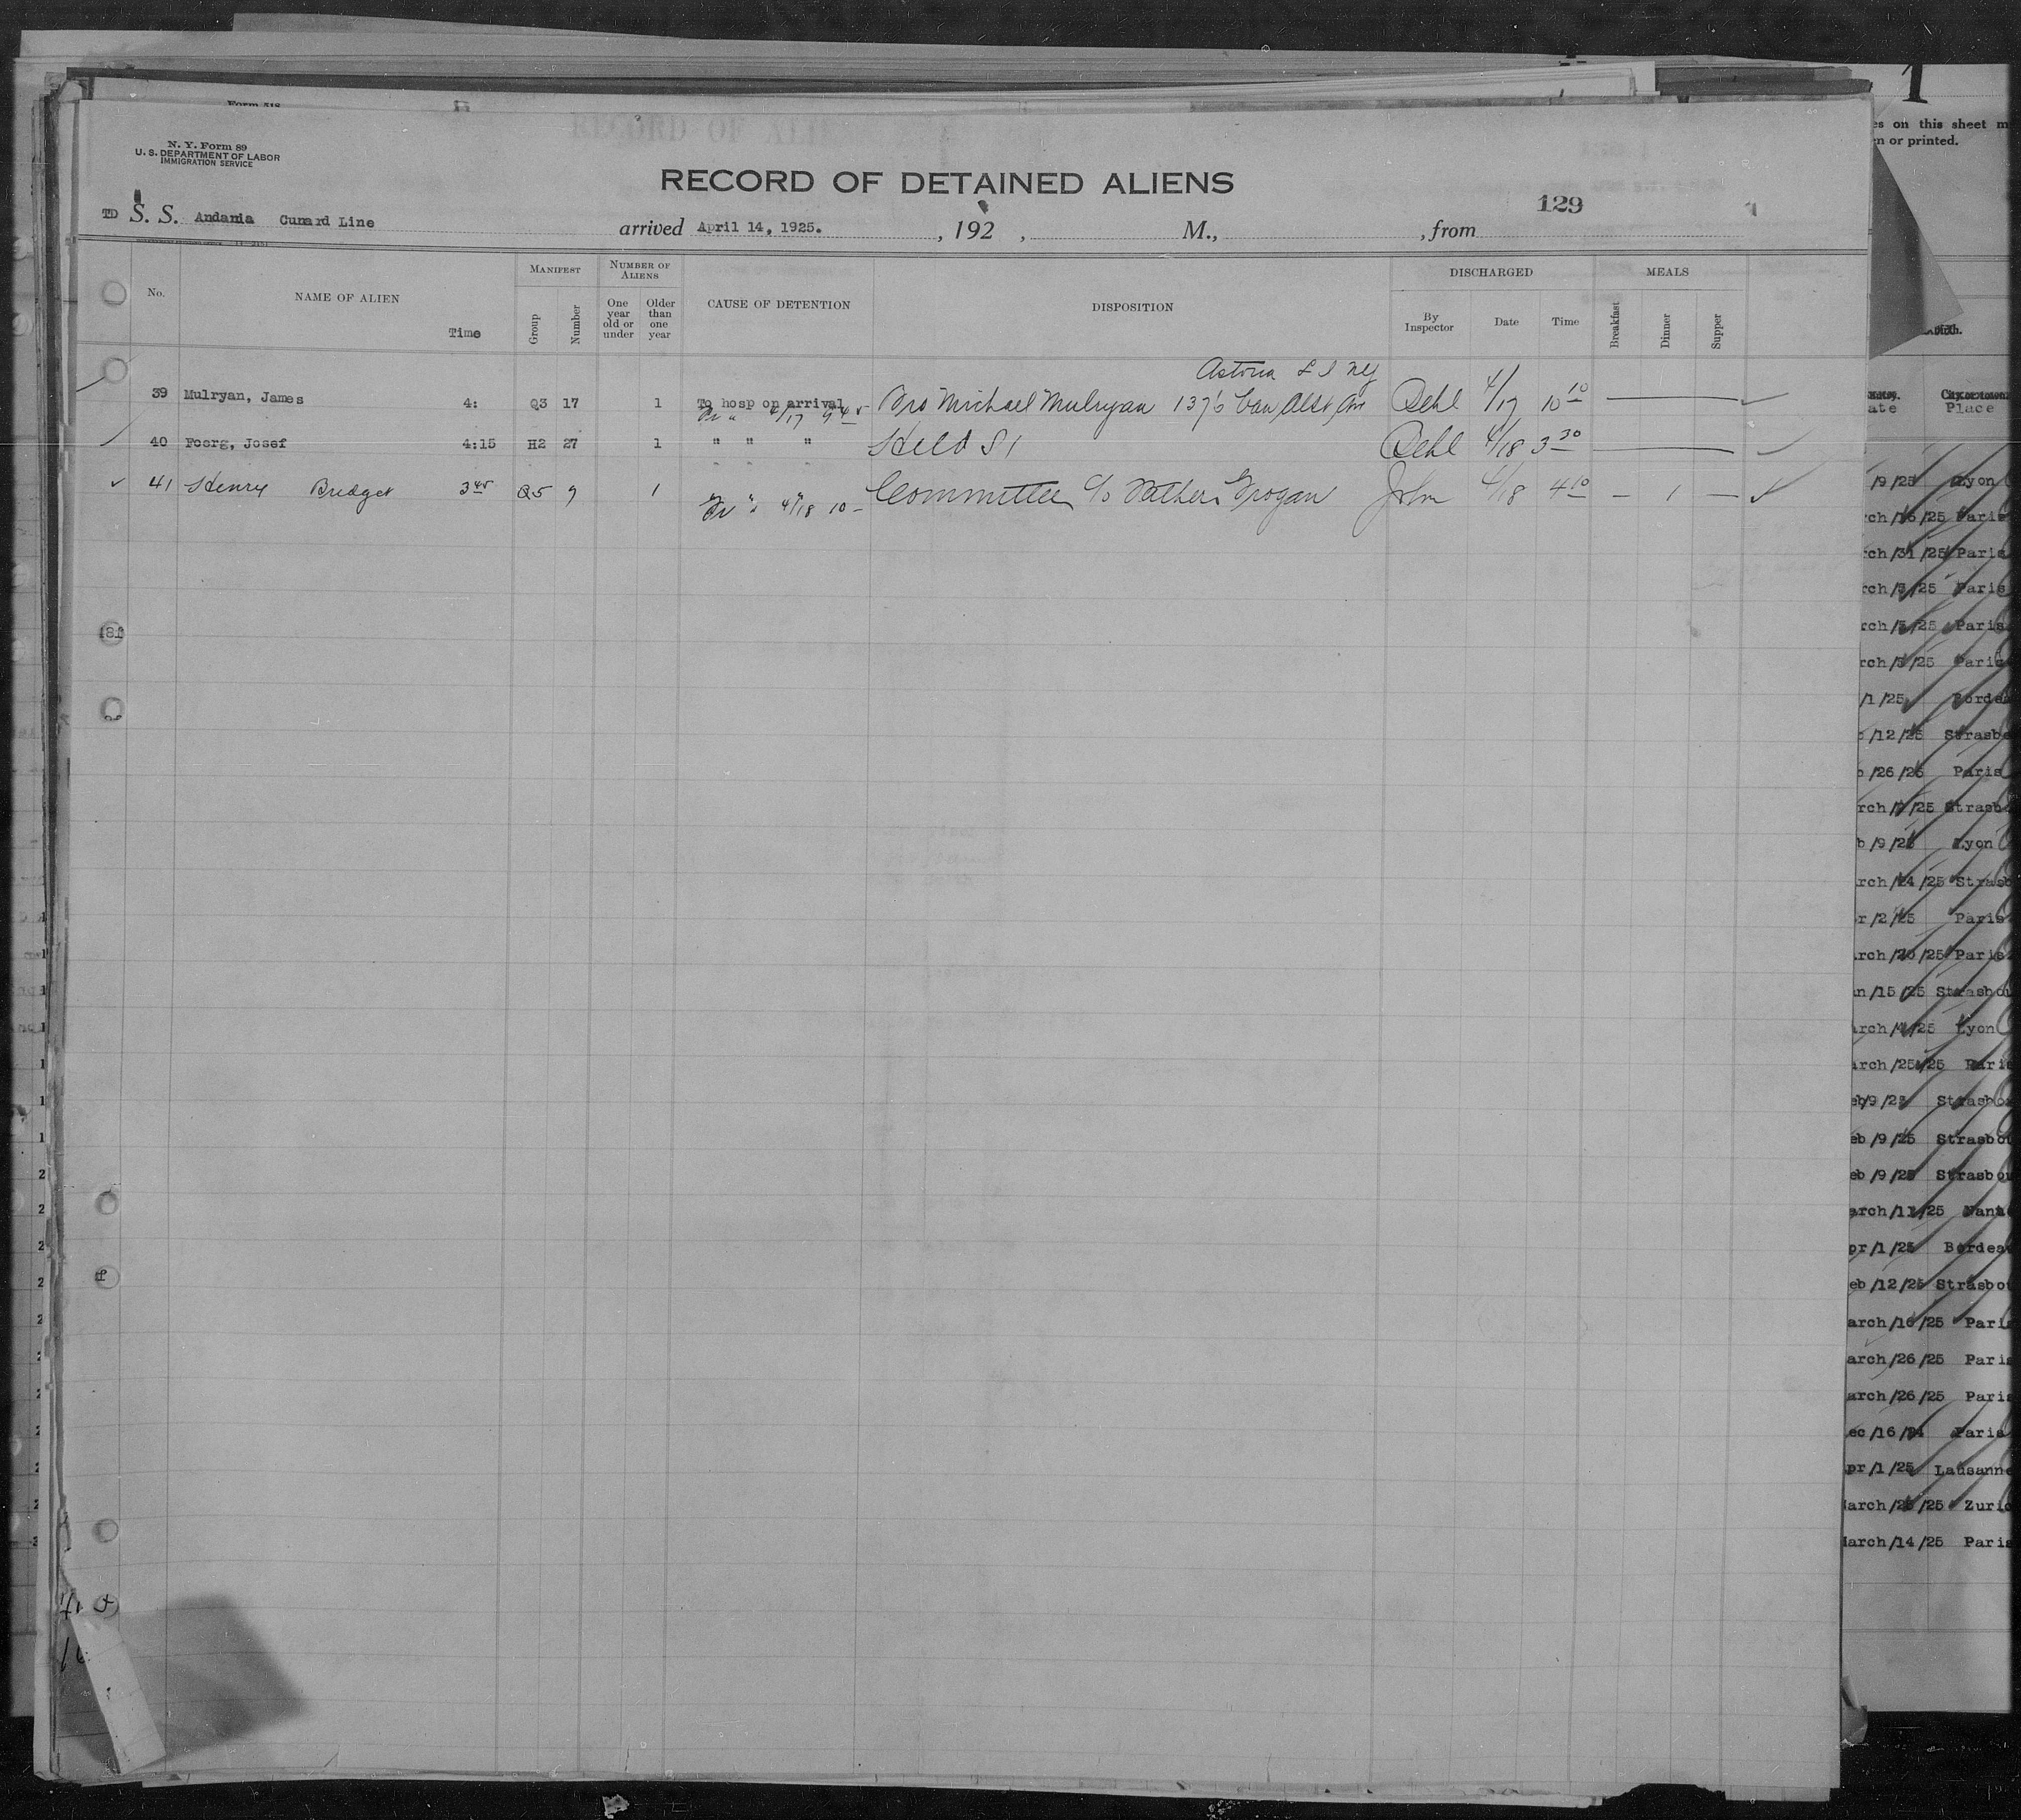 Form 518
N. Y. Form 89
U. S. DEPARTMENT OF LABOR
IMMIGRATION SERVICE
RECORD OF DETAINED ALIENS
129
TD S. S. Andania Cunard Line arrived April 14, 1925. , 192 , M., , from
No. NAME OF ALIEN Time MANIFEST Group Number NUMBER OF ALIENS One year old or under Older than one year CAUSE OF DETENTION DISPOSITION DISCHARGED By Inspector Date Time MEALS Breakfast Dinner Supper
Astoria L I NY
39 Mulryan, James 4: Q3 17 1 To hosp on arrival Bro Michael Mulryan 1376 Van Alst Ave 4/17 10 10
Fr " 4/17 9 45
40 Foerg, Josef 4:15 H2 27 1 " " " Held S I 4/18 3 30
41 Henry Bridget 3 45 Q5 9 1 " " " Committee c/o Father Grogan John 4/18 4 10 — 1 —
Fr " " 4/18 10 —
1
es on this sheet m
n or printed.
ate Place
/9/25 Lyon
rch/16/25 Paris
rch/31/25 Paris
rch/3/25 Paris
rch/3/25 Paris
rch/3/25 Paris
/1/25 Bordea
/12/25 Strasbo
/26/25 Paris
rch/ /25 Strasbo
b/9/25 Lyon
rch/24/25 Strasb
r/2/25 Paris
rch/20/25 Paris
n/15/25 Strasbou
arch/4/25 Lyon
arch/25/25 Paris
eb/9/25 Strasbou
eb/9/25 Strasbou
eb/9/25 Strasbou
arch/11/25 Nant
pr/1/25 Bordeau
eb/12/25 Strasbou
arch/16/25 Paris
arch/26/25 Paris
arch/26/25 Paris
ec/16/24 Paris
pr/1/25 Lausanne
arch/25/25 Zuric
arch/14/25 Paris